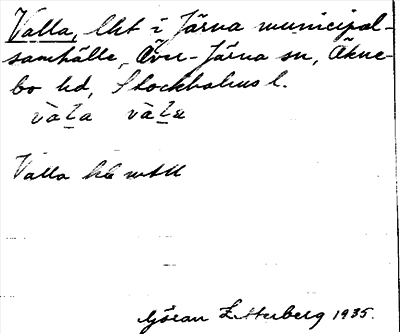 Valla, lht i Järna municipal-
samhälle, Över-Järna sn, Åkne-
bo hd, Stockholms l.
vàl̲a vàl̲a
Valla
Göran Zetterberg 1935.